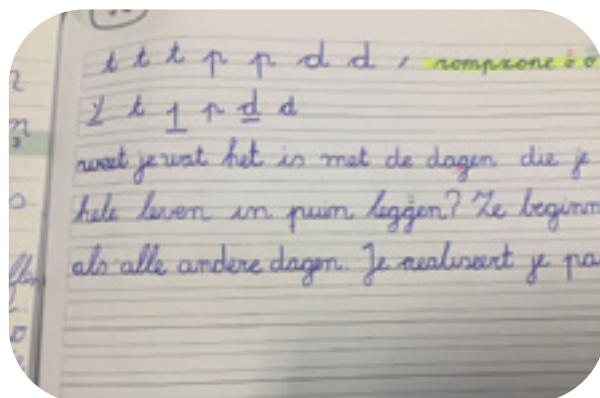 t t t p p d d , rompzone
t t 1 p d d
weet je wat het is met de dagen die je
hele leven in puin leggen? Ze beginn
als alle andere dagen. Je realiseert je pa